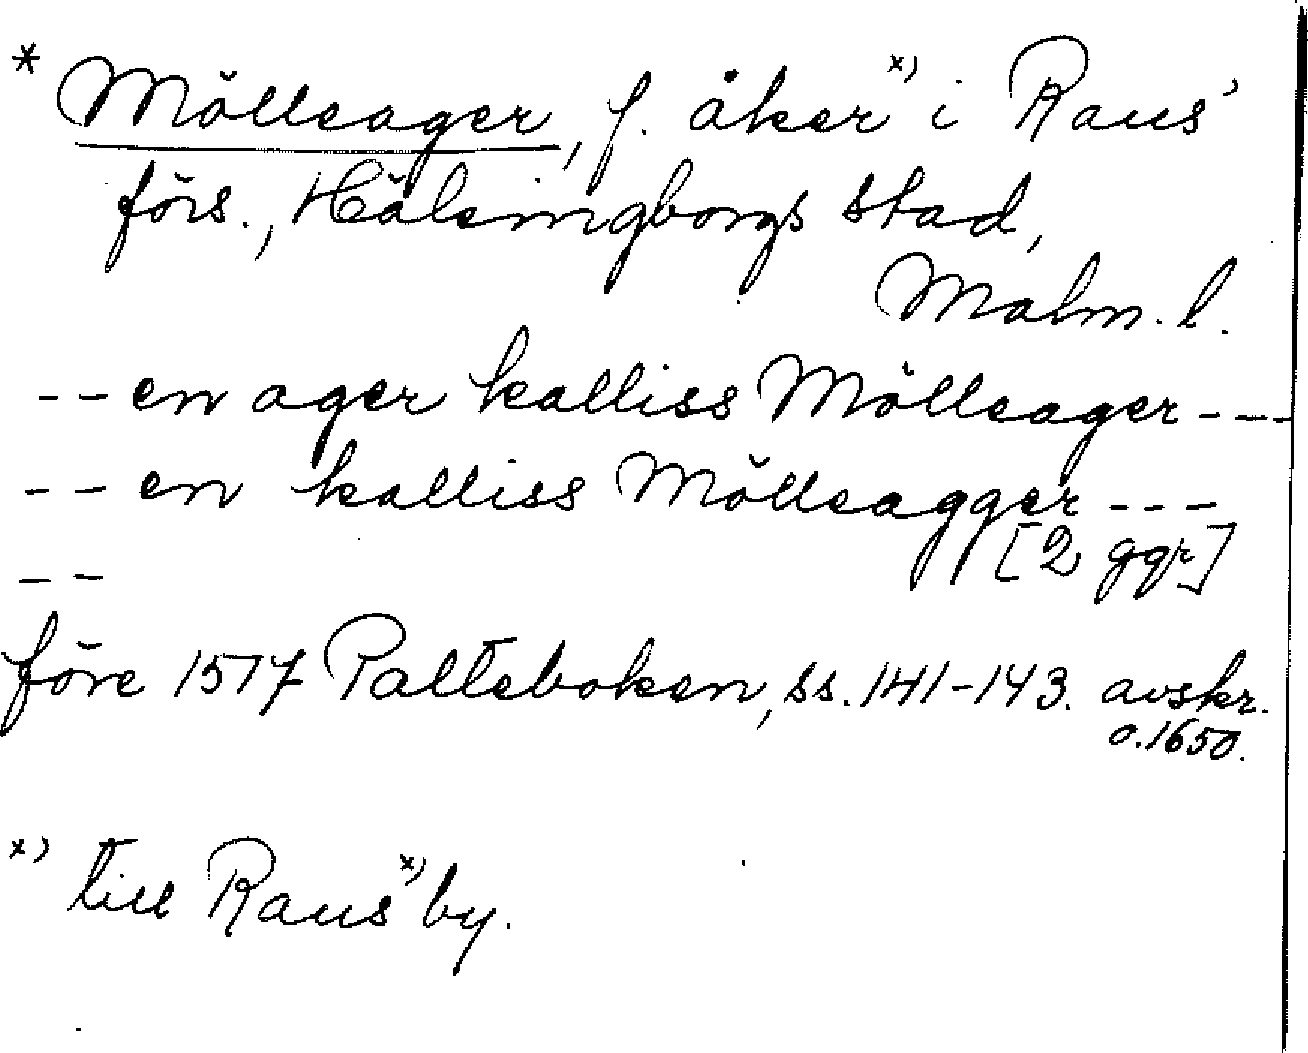 * Mölleager, f. åker x) i Raus'
förs., Hälsingborgs stad,
Malm. l.
-- en ager kalliss Mölleager ---
-- en kalliss Mölleagger ---
-- [2 ggr]
före 1517 Palteboken, ss. 141-143. avskr.
o. 1650.
x) till Raus x) by.